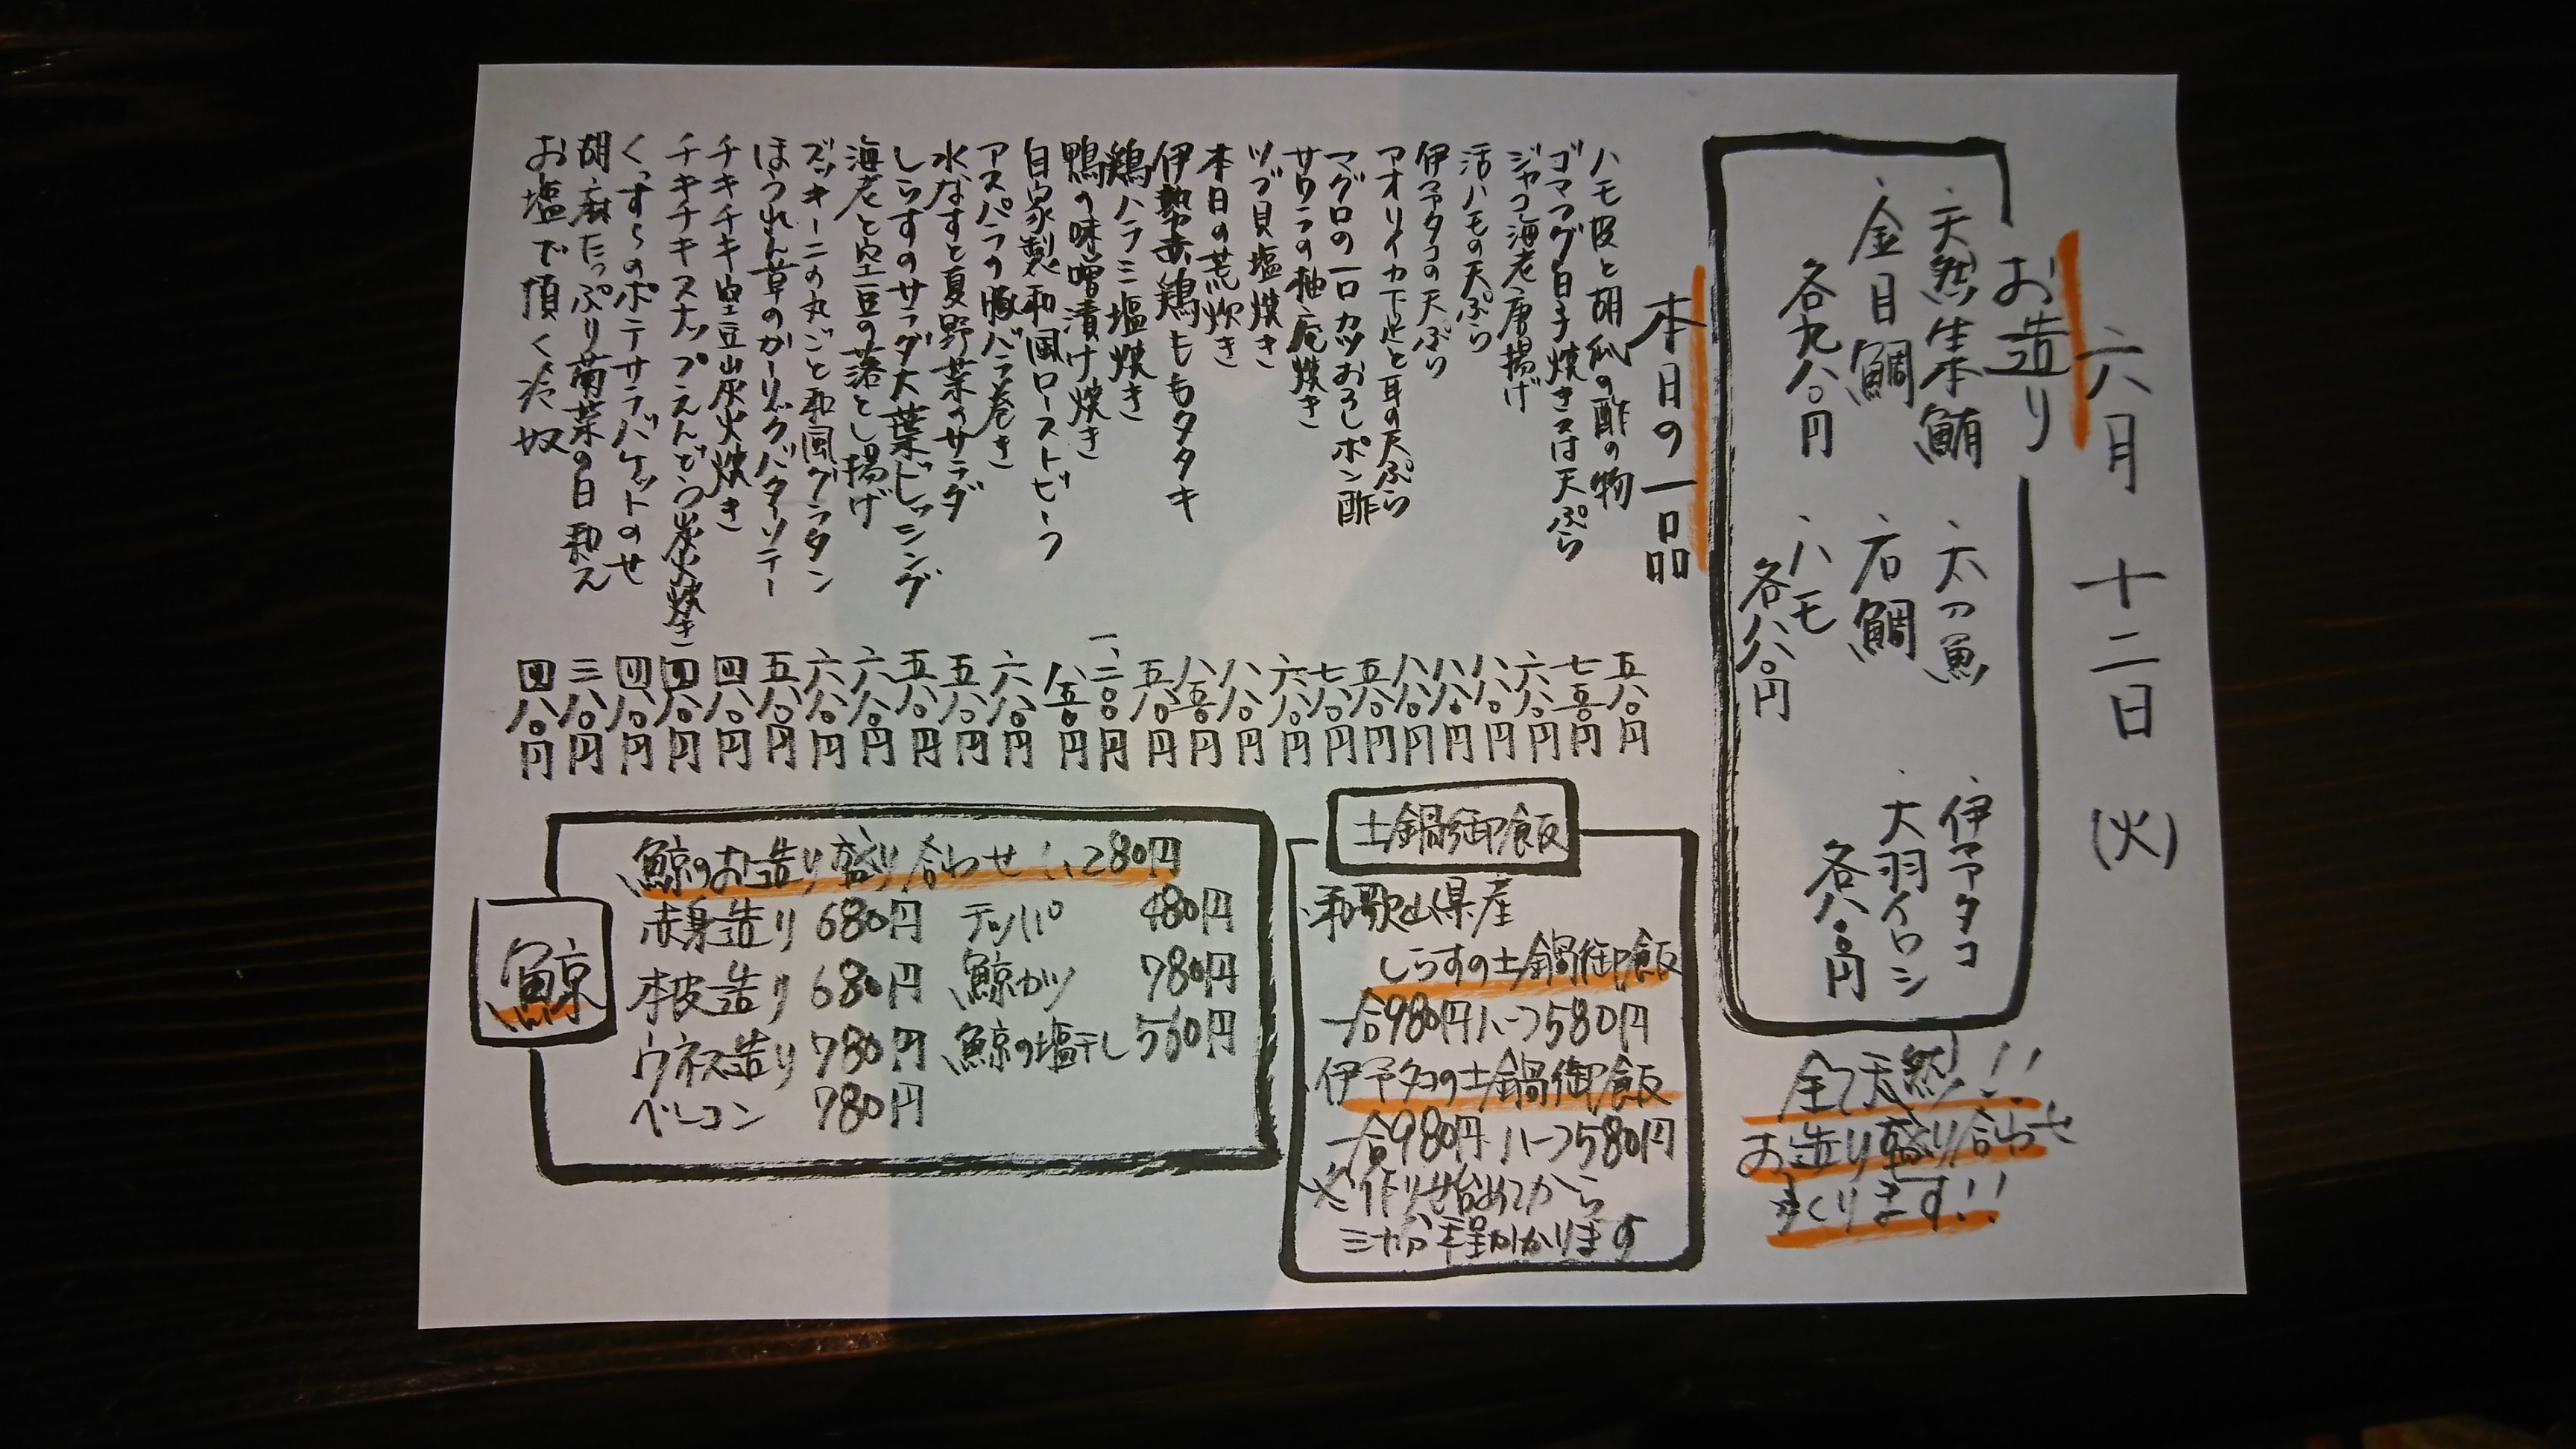 六月十二日(火)
お造り
・天然生本鮪
・金目鯛
各九八〇円
・太刀魚
・石鯛
・ハモ
各八八〇円
・伊予タコ
・大羽イワシ
各八〇〇円
全て天然!!
お造り盛り合わせ
承ります!!
本日の一品
ハモ皮と胡瓜の酢の物 五八〇円
ゴマフグ白子焼き又は天ぷら 七五〇円
ジャコ海老唐揚げ 六八〇円
活ハモの天ぷら 八八〇円
伊予タコの天ぷら 八八〇円
アオリイカ下足と耳の天ぷら 八八〇円
マグロの一口カツおろしポン酢 五八〇円
サワラの柚庵焼き 七八〇円
ツブ貝塩焼き 六八〇円
本日の荒炊き 八八〇円
伊勢赤鶏ももタタキ 八五〇円
鶏ハラミ塩焼き 五八〇円
鴨の味噌漬け焼き 一、二〇〇円
自家製和風ローストビーフ 八五〇円
アスパラの豚バラ巻き 六八〇円
水なすと夏野菜のサラダ 五八〇円
しらすのサラダ大葉ドレッシング 五八〇円
海老と空豆の落とし揚げ 六八〇円
ズッキーニの丸ごと和風グラタン 六八〇円
ほうれん草のガーリックバターソテー 五八〇円
チキチキ空豆炭火焼き 四八〇円
チキチキスナップえんどう炭火焼き 四八〇円
くっすらのポテサラバケットのせ 四八〇円
胡麻たっぷり菊菜の白和え 三八〇円
お塩で頂く冷奴 四八〇円
土鍋御飯
・和歌山県産
しらすの土鍋御飯
一合980円ハーフ580円
・伊予タコの土鍋御飯
一合980円ハーフ580円
※作り始めてから
三十分程かかります
鯨
鯨のお造り盛り合わせ 1,280円
赤身造り 680円 テッパ 480円
本皮造り 680円 鯨カツ 780円
ウネス造り 780円 鯨の塩干し 560円
ベーコン 780円